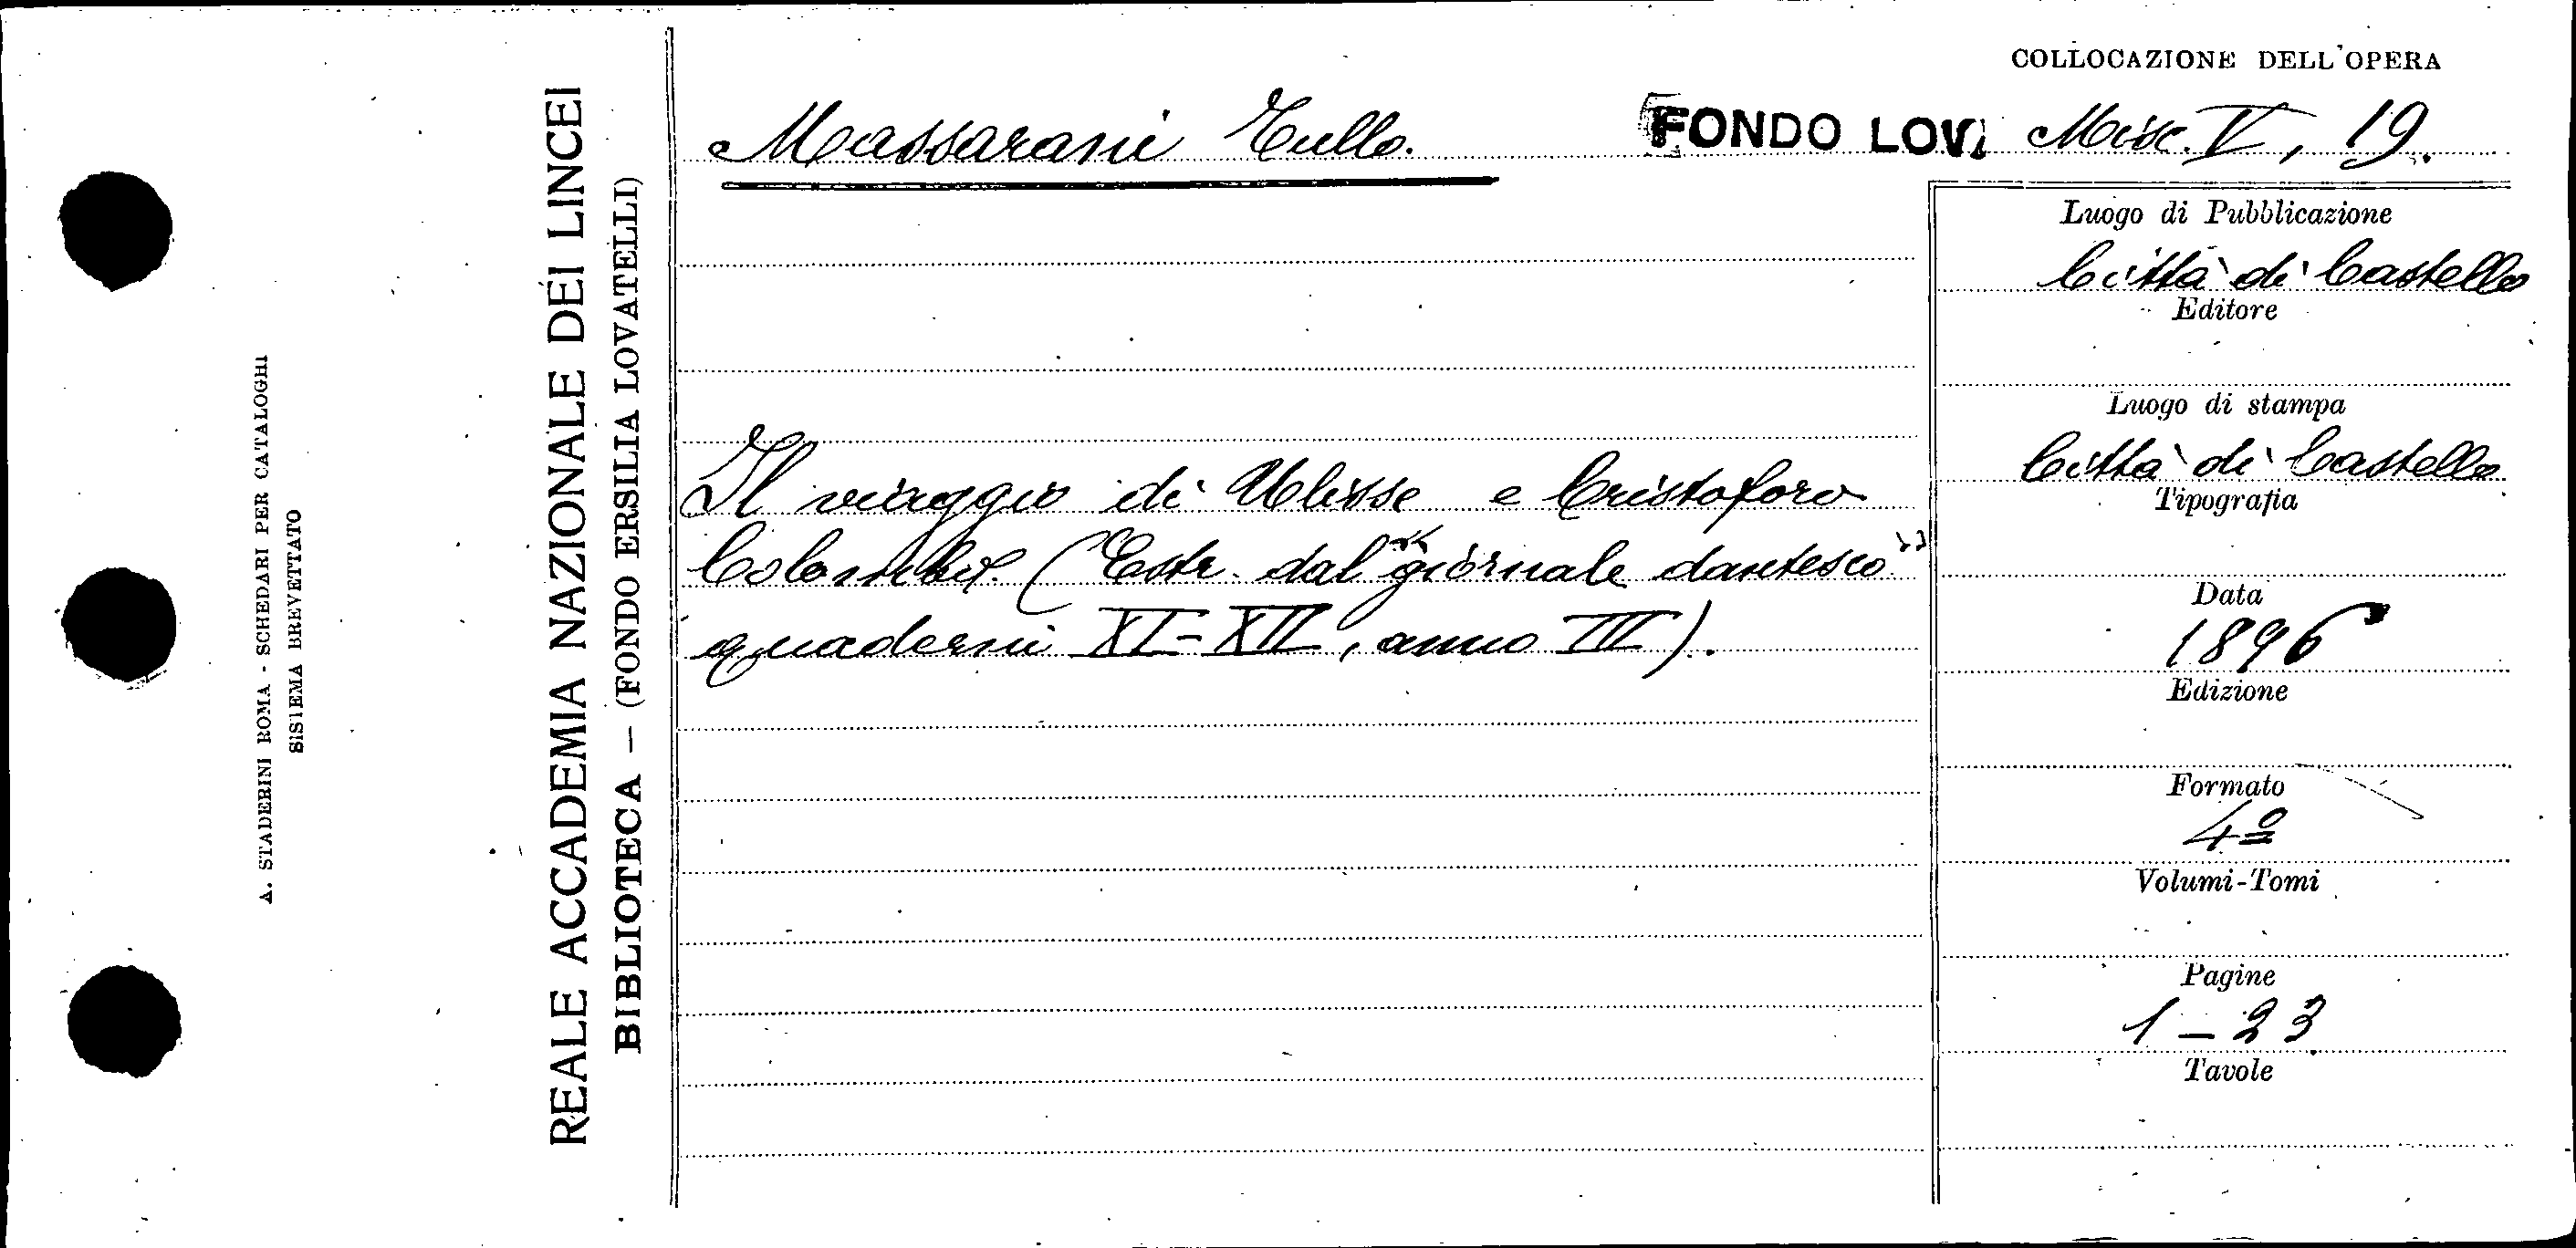 COLLOCAZIONE DELL'OPERA
Massarani Tullo.
FONDO LOV. Misc. V, 19.
Il viaggio di Ulisse e Cristoforo
Colombo. (Estr. dal "giornale dantesco"
quaderni XI-XII, anno III).
Luogo di Pubblicazione
Città di Castello
Editore
Luogo di stampa
Città di Castello
Tipografia
Data
1896
Edizione
Formato
4º
Volumi-Tomi
Pagine
1-23
Tavole
REALE ACCADEMIA NAZIONALE DEI LINCEI
BIBLIOTECA — (FONDO ERSILIA LOVATELLI)
A. STADERINI ROMA - SCHEDARI PER CATALOGHI
SISTEMA BREVETTATO